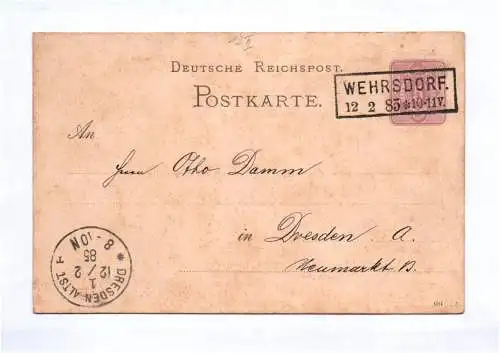 DEUTSCHE REICHSPOST.
POSTKARTE.
WEHRSDORF.
12 2 85 *10-11V.
An
Herrn Otto Damm
in Dresden A.
Neumarkt
DRESDEN ALTST.
1
12/2
85
8-10N